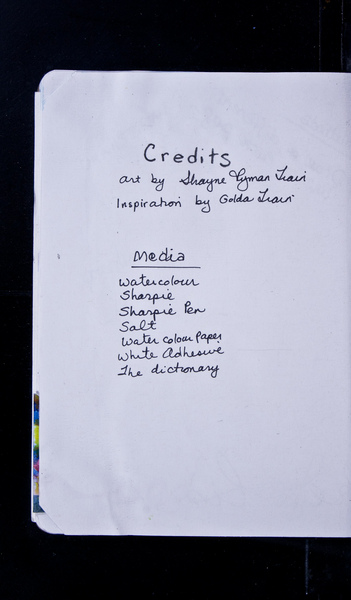 Credits
art by Shayne Lyman Travi
Inspiration by Golda Travi
Media
Watercolour
Sharpie
Sharpie Pen
Salt
Water colour Paper
White Adhesive
The dictionary